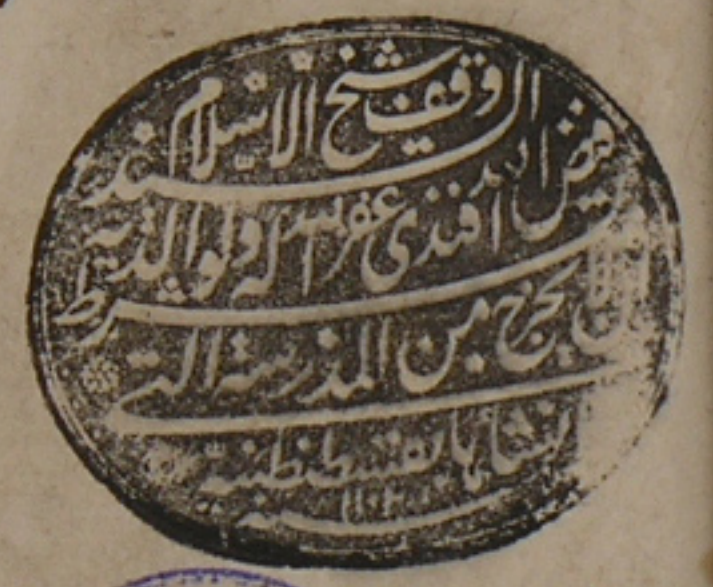 وقف شيخ الاسلام السيد
فيض الله افندى غفر الله له ولوالديه
بشرط ان لا يخرج من المدرسة التي
انشأها بقسطنطنية
سنة